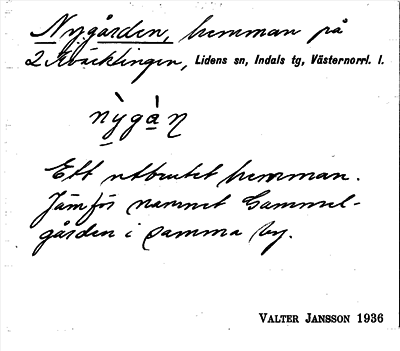 Nygården, hemman på
2 Kväcklingen, Lidens sn, Indals tg, Västernorrl. l.
nỳgàn
Ett utbrutet hemman.
Jämför namnet Gammel-
gården i samma by.
VALTER JANSSON 1936